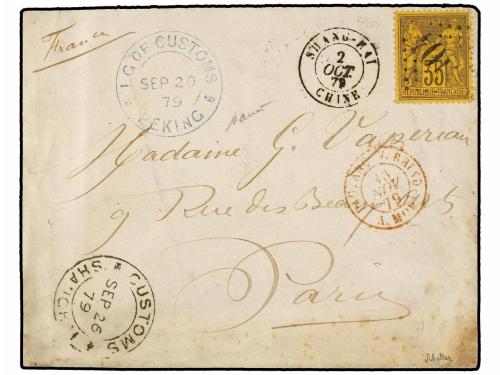 France
I.G. OF CUSTOMS
SEP 20
79
PEKING
SHANG-HAI
2
OCT.
79
CHINE
35
REPUBLIQUE FRANÇAISE
Madame G. Vapereau
9 Rue des Beaux Arts
Paris
13
NOV
79
A. MOD
CUSTOMS
SEP 26
79
SHANGHAI